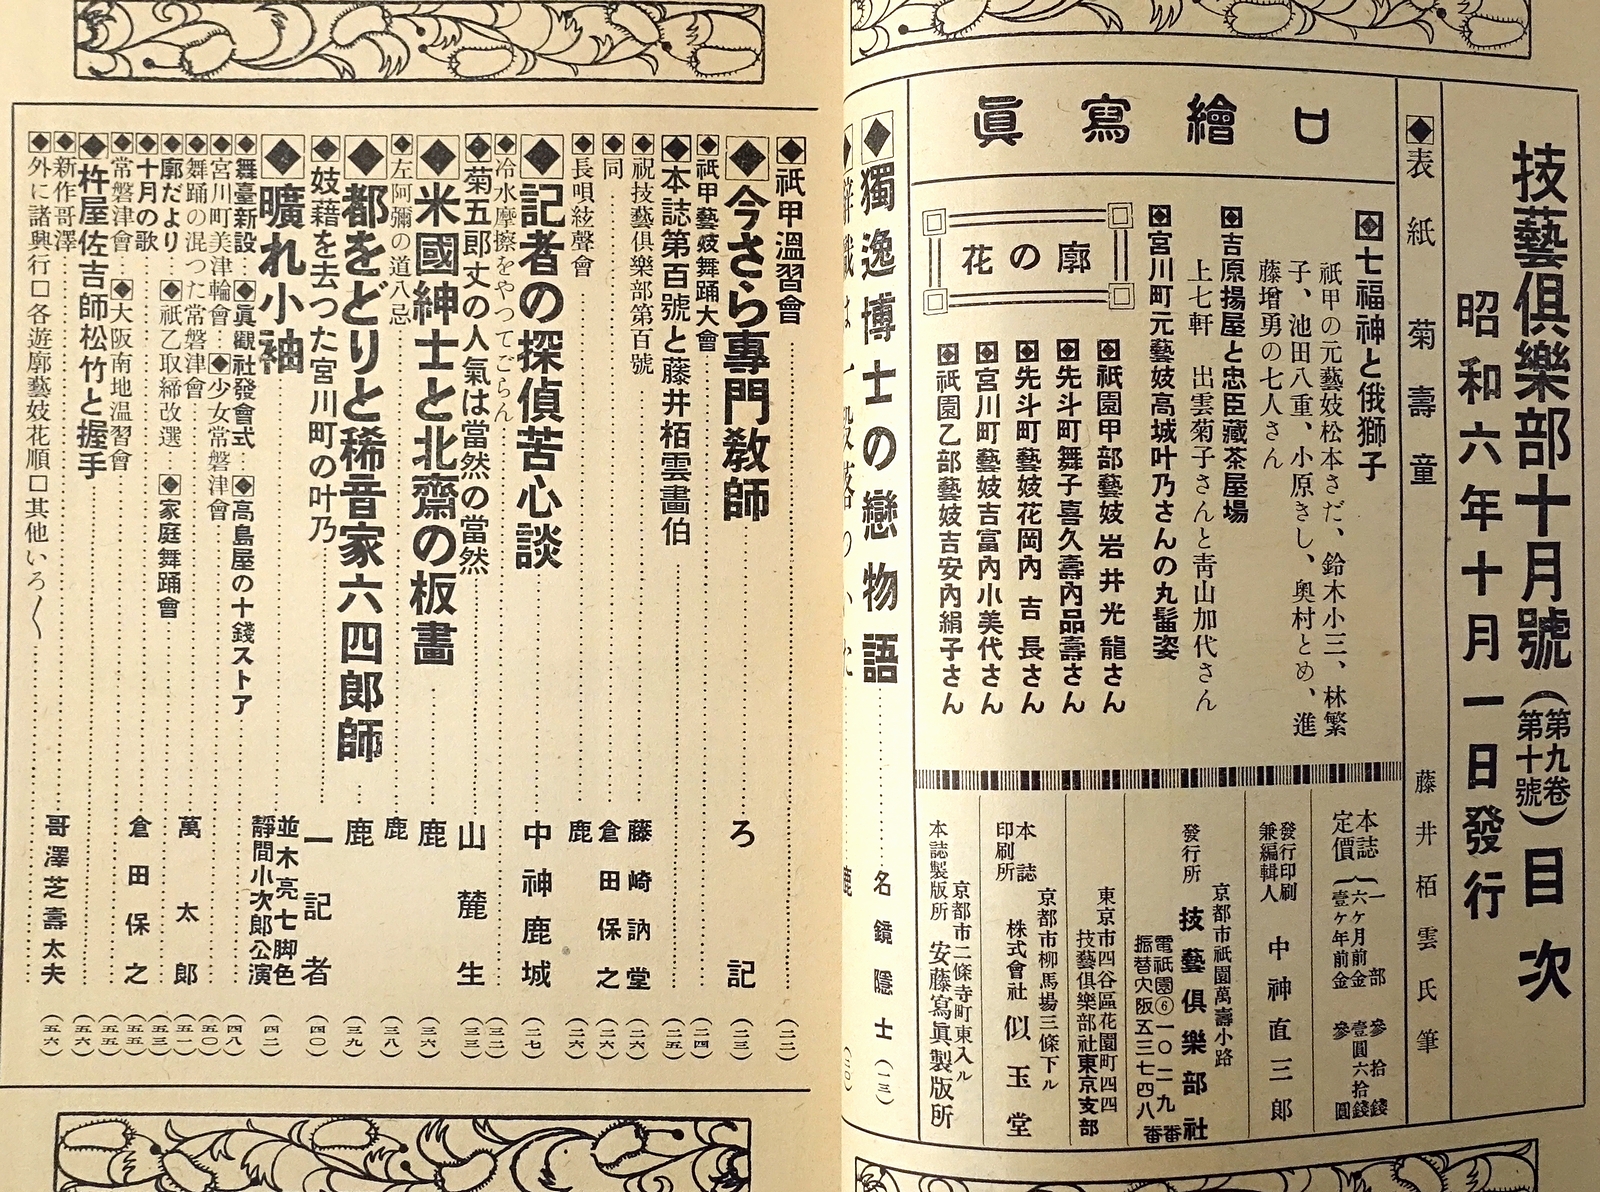 技藝倶樂部十月號（第九卷第十號）目次
昭和六年十月一日發行
◆表紙 菊壽童 藤井栢雲氏筆
口繪寫眞
◆七福神と俄獅子
祇甲の元藝妓松本さだ、鈴木小三、林繁
子、池田八重、小原きし、奥村とめ、進
藤增勇の七人さん
◆吉原揚屋と忠臣藏茶屋場
上七軒 出雲菊子さんと青山加代さん
◆宮川町元藝妓高城叶乃さんの丸髷姿
廓の花
◆祇園甲部藝妓岩井光龍さん
◆先斗町舞子喜久壽內品壽さん
◆先斗町藝妓花岡內吉長さん
◆宮川町藝妓吉富內小美代さん
◆祇園乙部藝妓吉安內絹子さん
本誌定價
一部 參拾錢
六ヶ月前金 壹圓六拾錢
壹ヶ年前金 參圓
發行印刷兼編輯人 中神直三郎
京都市祇園萬壽小路
發行所 技藝倶樂部社
電祇園⑥一〇二九番
振替大阪五三七四八番
東京市四谷區花園町四四
技藝倶樂部社東京支部
京都市柳馬場三條下ル
本誌印刷所 株式會社 似玉堂
京都市二條寺町東入ル
本誌製版所 安藤寫眞製版所
◆獨逸博士の戀物語 名鏡隱士（一三）
◆祇甲溫習會（二二）
◆今さら專門教師 ろ記（二三）
◆祇甲藝妓舞踊大會（二四）
◆本誌第百號と藤井栢雲畫伯（二五）
◆祝技藝倶樂部第百號 藤崎訥堂（二六）
◆同 倉田保之（二六）
◆長唄絃聲會 鹿（二六）
◆記者の探偵苦心談 中神鹿城（二七）
◆冷水摩擦をやつてごらん（三二）
◆菊五郎丈の人氣は當然の當然 山麓生（三三）
◆米國紳士と北齋の板畫 鹿（三六）
◆左阿彌の道八忌 鹿（三八）
◆都をどりと稀音家六四郎師 鹿（三九）
◆妓藉を去つた宮川町の叶乃 一記者（四〇）
◆曠れ小袖 並木亮七脚色 靜間小次郎公演（四二）
◆舞臺新設 ◆眞觀社發會式 ◆高島屋の十錢ストア（四八）
◆宮川町美津輪會 ◆少女常磐津會（五〇）
◆舞踊の混つた常磐津會 萬太郎（五一）
◆廓だより ◆祇乙取締改選 ◆家庭舞踊會（五三）
◆十月の歌 倉田保之（五五）
◆常磐津會 ◆大阪南地温習會（五五）
◆杵屋佐吉師松竹と握手（五六）
◆新作哥澤 哥澤芝壽太夫（五六）
◆外に諸興行□各遊廓藝妓花順□其他いろ〱